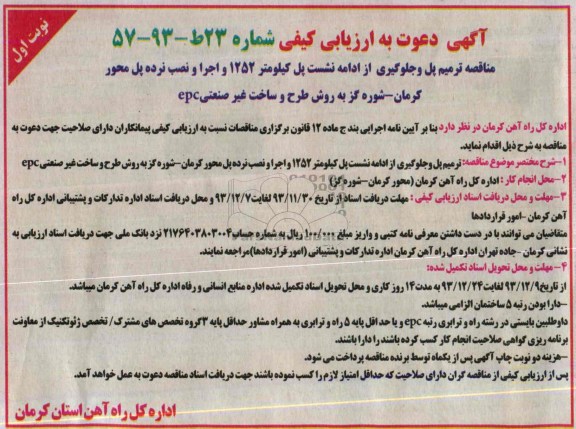 نوبت اول
آگهی دعوت به ارزیابی کیفی شماره ۲۳ط-۹۳-۵۷
مناقصه ترمیم پل وجلوگیری از ادامه نشست پل کیلومتر ۱۲۵۲ و اجرا و نصب نرده پل محور
کرمان-شوره گز به روش طرح و ساخت غیر صنعتیepc
اداره کل راه آهن کرمان در نظر دارد بنا بر آیین نامه اجرایی بند ج ماده ۱۲ قانون برگزاری مناقصات نسبت به ارزیابی کیفی پیمانکاران دارای صلاحیت جهت دعوت به
مناقصه به شرح ذیل اقدام نماید.
۱-شرح مختصر موضوع مناقصه: ترمیم پل وجلوگیری از ادامه نشست پل کیلومتر ۱۲۵۲ و اجرا و نصب نرده پل محور کرمان-شوره گز به روش طرح و ساخت غیر صنعتیepc
۲-محل انجام کار : اداره کل راه آهن کرمان (محور کرمان-شوره گز)
۳-مهلت و محل دریافت اسناد ارزیابی کیفی : مهلت دریافت اسناد از تاریخ ۹۳/۱۱/۳۰ لغایت۹۳/۱۲/۷ و محل دریافت اسناد اداره تدارکات و پشتیبانی اداره کل راه
آهن کرمان -امور قراردادها
متقاضیان می توانند با در دست داشتن معرفی نامه کتبی و واریز مبلغ ۱۰۰/۰۰۰ ریال به شماره حساب۲۱۷۶۴۰۳۸۰۳۰۰۴ نزد بانک ملی جهت دریافت اسناد ارزیابی به
نشانی کرمان -جاده تهران اداره کل راه آهن کرمان اداره تدارکات و پشتیبانی (امور قراردادها)مراجعه نمایند.
۴-مهلت و محل تحویل اسناد تکمیل شده:
از تاریخ۹۳/۱۲/۹ لغایت۹۳/۱۲/۲۴ به مدت۱۴ روز کاری و محل تحویل اسناد تکمیل شده اداره منابع انسانی و رفاه اداره کل راه آهن کرمان میباشد.
-دارا بودن رتبه ۵ ساختمان الزامی میباشد.
داوطلبین بایستی در رشته راه و ترابری رتبه epc و یا حداقل پایه ۵ راه و ترابری به همراه مشاور حداقل پایه ۳گروه تخصص های مشترک/ تخصص ژئوتکنیک از معاونت
برنامه ریزی گواهی صلاحیت انجام کار کسب کرده باشند را دارا باشند.
-هزینه دو نوبت چاپ آگهی پس از یکماه توسط برنده مناقصه پرداخت می شود.
پس از ارزیابی کیفی از مناقصه گران دارای صلاحیت که حداقل امتیاز لازم را کسب نموده باشند جهت دریافت اسناد مناقصه دعوت به عمل خواهد آمد.
اداره کل راه آهن استان کرمان